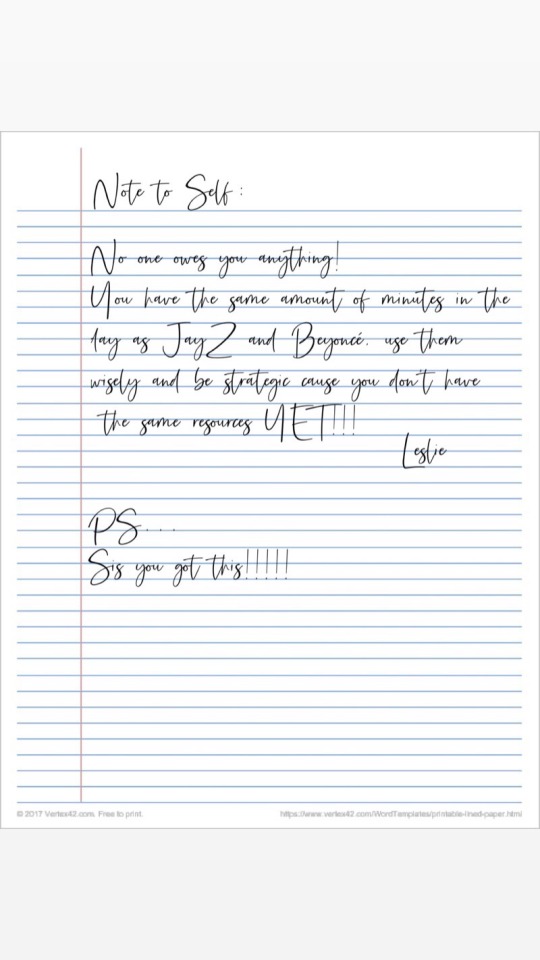 Note to Self:
No one owes you anything!
You have the same amount of minutes in the
day as JayZ and Beyoncé. use them
wisely and be strategic cause you don't have
the same resources YET!!!
Leslie
PS...
Sis you got this!!!!!
© 2017 Vertex42.com. Free to print.
https://www.vertex42.com/WordTemplates/printable-lined-paper.html